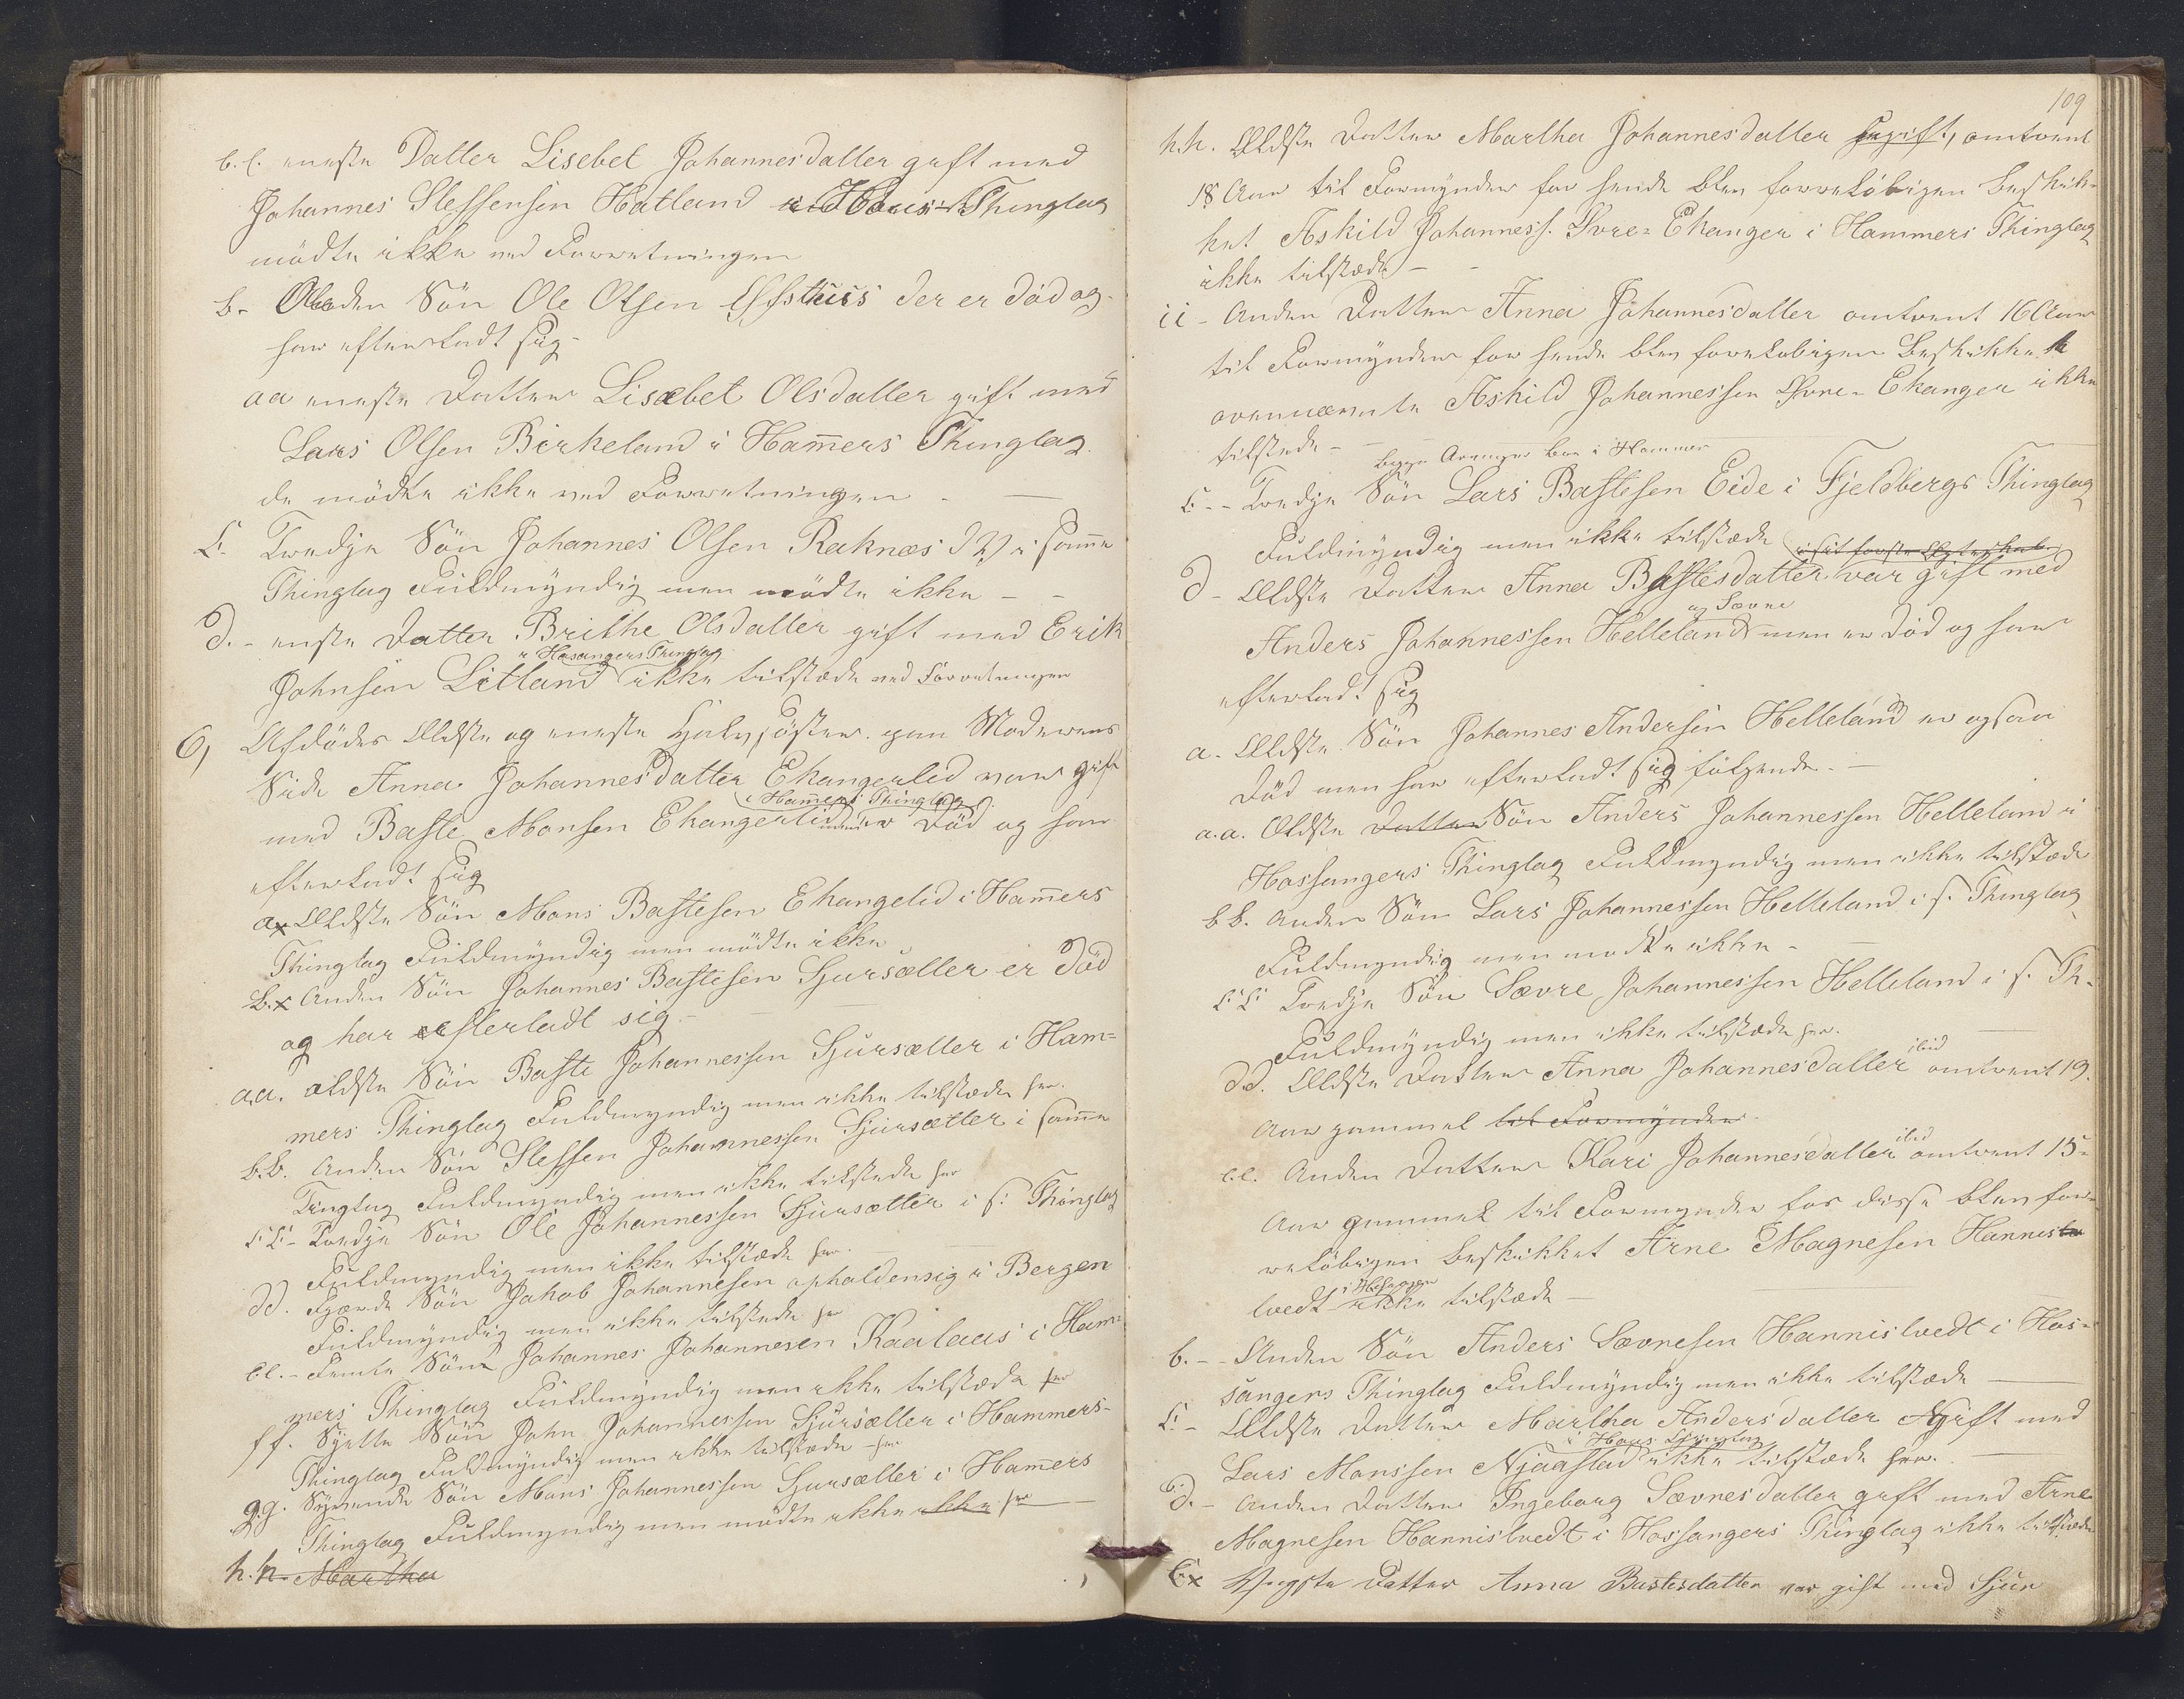 b.c. eneste Datter Lisebet Johannesdatter gift med
Johannes Steffensen Hatland i Haus Thinglag
mödte ikke ved Forretningen
b. Anden Sön Ole Olsen der er död og
har efterladt sig
aa eneste Datter Lisæbet Olsdatter gift med
Lars Olsen Birkeland i Ham̄ers Thinglag
de mödte ikke ved Forretningen –
c. Tredje Sön Johannes Olsen Raknæs i sam̄e
Thinglag Fuldmyndig men mödte ikke – –
d. – eneste Datter Brithe Olsdatter gift med Erik
i Hosangers Thinglag
Johnsen Litland ikke tilstæde ved Forretningen
6, Afdödes Ældste og eneste Halvsöster paa Moderens
Side Anna Johannesdatter Ekangerlid var gift
i Ham̄ers Thinglag
med Baste Monsen Ekangerlid men er Död og har
efterladt sig
a x Ældste Sön Mons Bastesen Ekangelid i Ham̄ers
Thinglag Fuldmyndig men mödte ikke
b. x Anden Sön Johannes Bastesen Sjursætter er Död
og har efterladt sig –
aa. ældste Sön Baste Johannessen Sjursætter i Ham=
mers Thinglag Fuldmyndig men ikke tilstæde her.
b.b. Anden Sön Steffen Johannessen Sjursætter i sam̄e
Tinglag Fuldmyndig men ikke tilstede her
c.c. – Tredje Sön Ole Johannessen Sjursætter i s. Thinglag
Fuldmyndig men ikke tilstæde her.
dd. Fjærde Sön Jakob Johannesen opholdensig i Bergen
Fuldmyndig men ikke tilstede her
ee. – Femte Sön Johannes Johannesen Kaalaas i Ham=
mers Thinglag Fuldmyndig men ikke tilstæde her
ff. Sjette Sön John Johannessen Sjursætter i Hammers=
Thinglag Fuldmyndig men ikke tilstæde – her
gg. Syvende Sön Mons Johannessen Sjursætter i Ham̄ers
Thinglag Fuldmyndig men mödte ikke ikke her
h.h. Martha
109
h.h. Ældste Datter Martha Johannesdatter ugift, omtrent
18 Aar til Formynder for hende blev forrelöbigen beskik=
ket Askild Johanness. Övre= Ekanger i Hammers Thinglag
ikke tilstæde – –
ii – Anden Datter Anna Johannesdatter omtrent 16 Aar
til Formynder for hende blev forelobigen beskikket
ovennævnte Askild Johannessen Övre= Ekanger ikke
tilstede – begge Arvinger bor i Hammer
c. – – Tredje Sön Lars Bastesen Eide i Fjeldbergs Thinglag
Fuldmyndig men ikke tilstæde i sit forste Ægteskab
d – Ældste Datter Anna Bastesdatter var gift med
og Sævre
Anders Johannessen Helleland men er död og har
efterladt sig
a. Ældste Sön Johannes Andersen Helleland er ogsaa
Död men har efterladt sig fölgende. –
a.a. Ældste Datter Sön Anders Johannessen Helleland i
Hossangers Thinglag Fuldmyndig men ikke tilstæde
bb. Anden Sön Lars Johannessen Helleland i s. Thinglag
Fuldmyndig men mödte ikke –
c.c. Tredje Sön Sævre Johannessen Helleland i s. Th.
Fuldmyndig men ikke tilstæde her.
ibid
d.d. Ældste Datter Anna Johannesdatter omtrent 19.
Aar gammel til Formynder
ibid
e.e. Anden Datter Kari Johannesdatter omtrent 15=
Aar gammel til Formynder for disse blev for=
relöbigen beskikket Arne Magnesen Hannis
i Hosanger
tvedt ikke tilstæde –
b. – – Anden Sön Anders Sævresen Hannistvedt i Hos=
sangers Thinglag Fuldmyndig men ikke tilstæde
c. – Ældste Datter Martha Andersdatter gift med
i Haus Thinglag
Lars Monssen Njaastad ikke tilstæde her.
d. – Anden Datter Ingeborg Sævresdatter gift med Arne
Magnesen Hannistvedt i Hossangers Thinglag ikke tilstæde
E x Yngste Datter Anna Bastesdatter var gift med Sjur